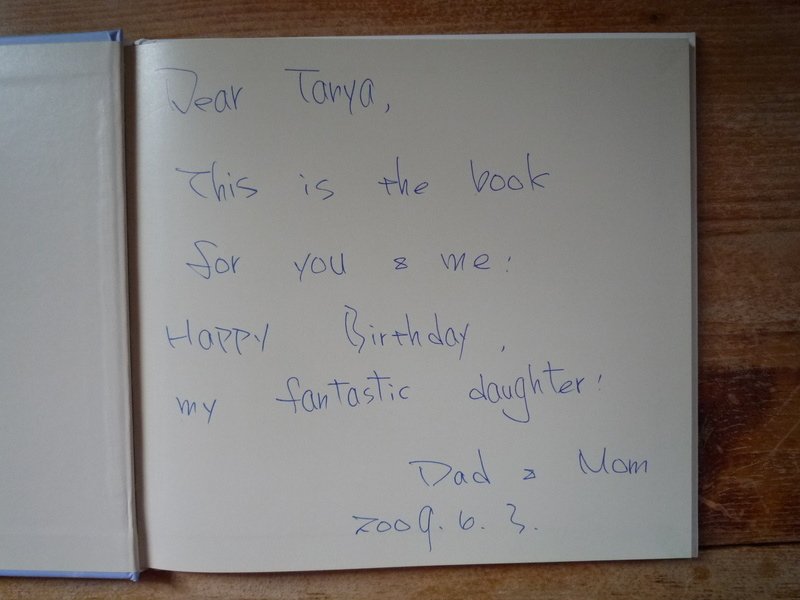 Dear Tanya,
This is the book
for you & me!
Happy Birthday,
my fantastic daughter!
Dad & Mom
2009. 6. 3.